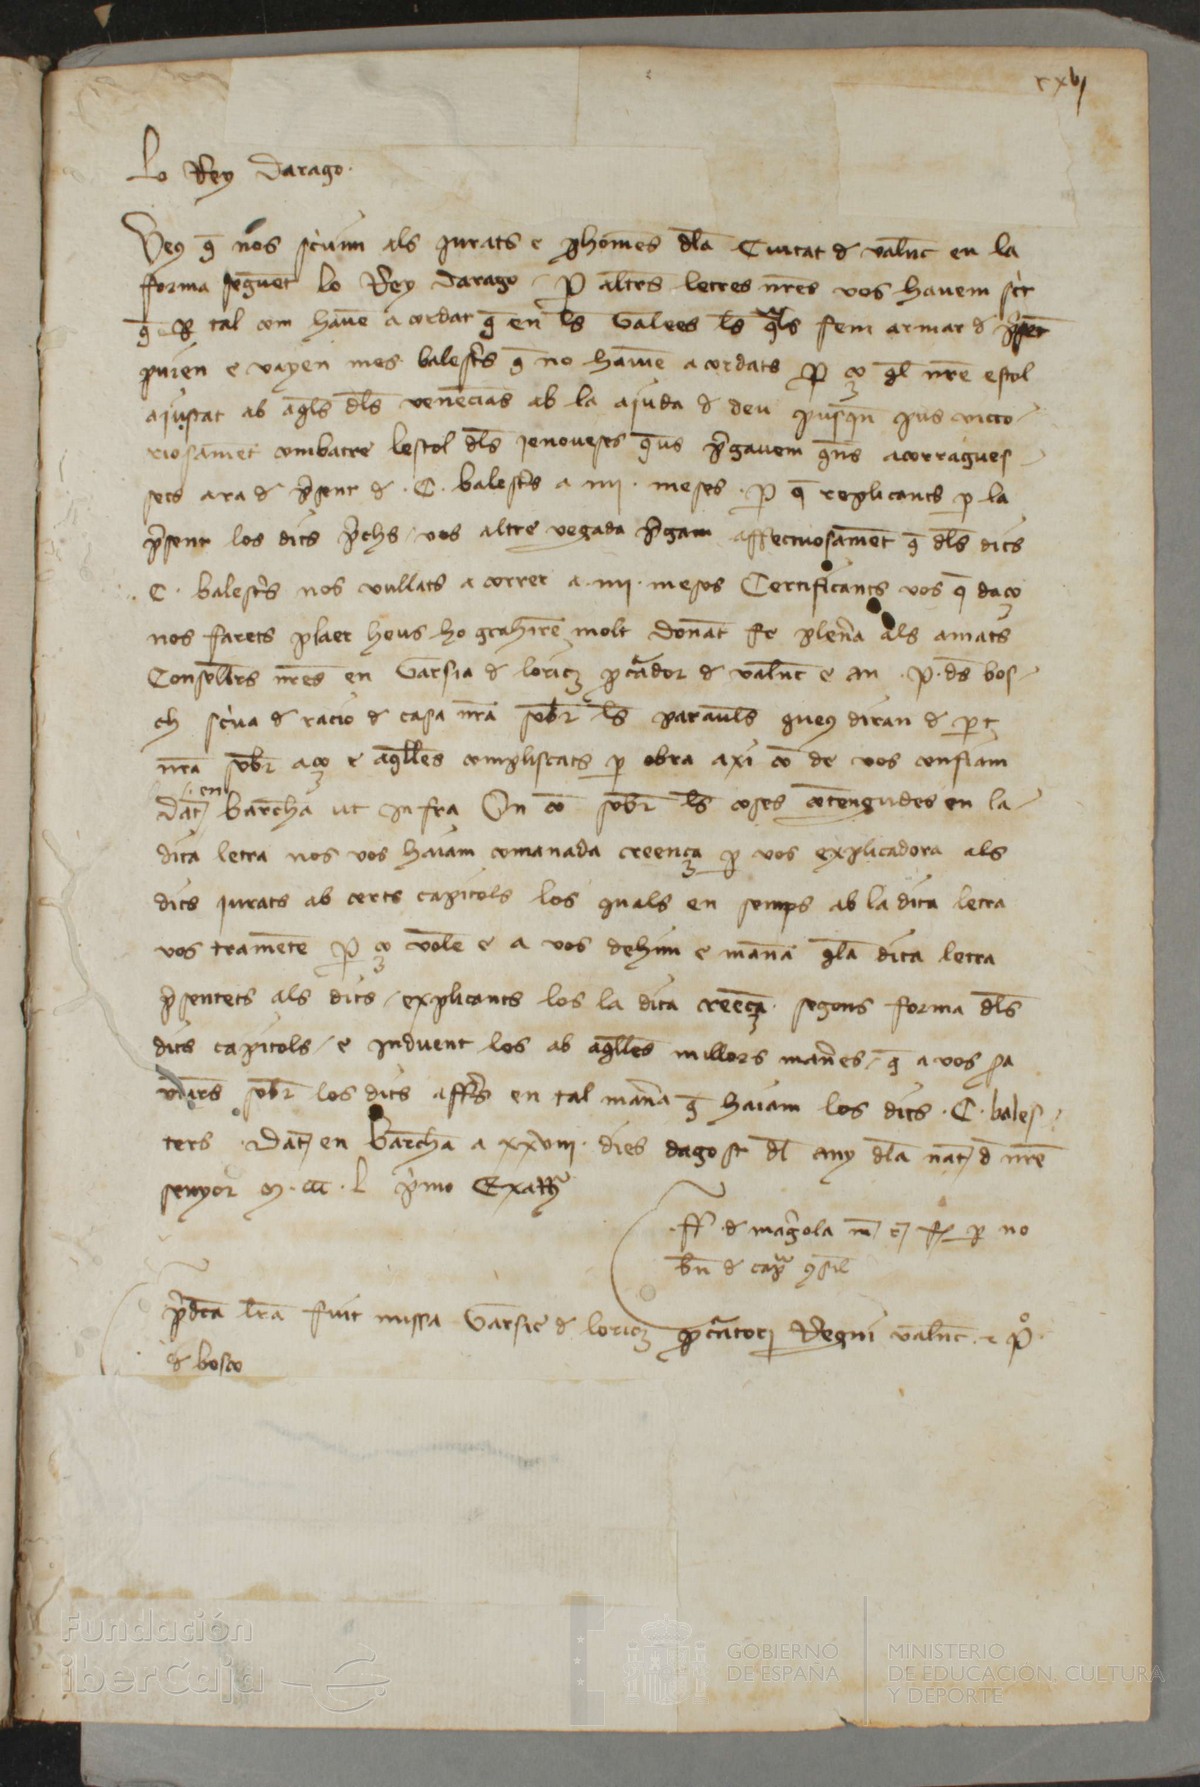 cxvj
Lo Rey Darago.
Veus q̄ nos scriuim als jurats e ꝓhomēs dl̄a Ciutat d valn̄c en la
fforma seguēt lo Rey Darago . Per altrēs letres nr̄es vos hauem scr̄
q̄ per tal com hauē acordat q̄ en ls̄ Galees ls̄ quals fem armar d presēt
pugen e vayen mes balestrs q̄ no hauiē acordats Per ço ql̄ nr̄e estol
ajustat ab aqls̄ dls̄ venecians ab la ajuda d deu pusqn̄ pus victo
riosamēt combatre lestol dls̄ jenoueses queus pregauem quens acorragues
sets ara d present d .C. balestrs a iiii . meses . Per q̄ replicants per la
present los dits prechs / vos altre vegada pregam affectuosamēt q̄ dls̄ dits
C . balestrs nos vullats acorrer a iiii . meses Certificants vos q̄ daço
nos farets plaer heus ho grahirē molt Donāt fe plenra als amats
Consellērs nr̄es en Garsia d loriç procurador d valn̄c e an .P. ds̄ bos
ch scriua d racio d casa nr̄a sobr̄ ls̄ paraulls queus diran d part
nr̄a sobr̄ aço e aqlles compliscats per obra axi cō de vos confiam
Dat̄ en barchā ut infra On cō sobr̄ ls̄ coses cōtengudes en la
dita letra nos vos haiam comanada creença per vos explicadora als
dits jurats ab certs capitols los quals en semps ab la dita letra
vos trametē Per ço volē e a vos dehim e manā qla dita letra
presentets als dits / explicants los la dita creēça . segons forma dls̄
dits capitols / e induent los ab aqlles millors maneres / q̄ a vos pa
rra sobr̄ los dits affers en tal manera q̄ haiam los dits .C. bales
ters . Dat̄ en Barchā a xxviii . dies dagost dl̄ any dl̄a nat̄ d nr̄e
senyor M. ccc . L primo Exa
.ff. d magrola per no
bn̄ d cap consil
predcā lr̄a fuit missa Garsie d loriç procuratori Regni valn̄c . e P.
d bosco
Fundación
iberCaja
GOBIERNO
DE ESPAÑA
MINISTERIO
DE EDUCACIÓN, CULTURA
Y DEPORTE